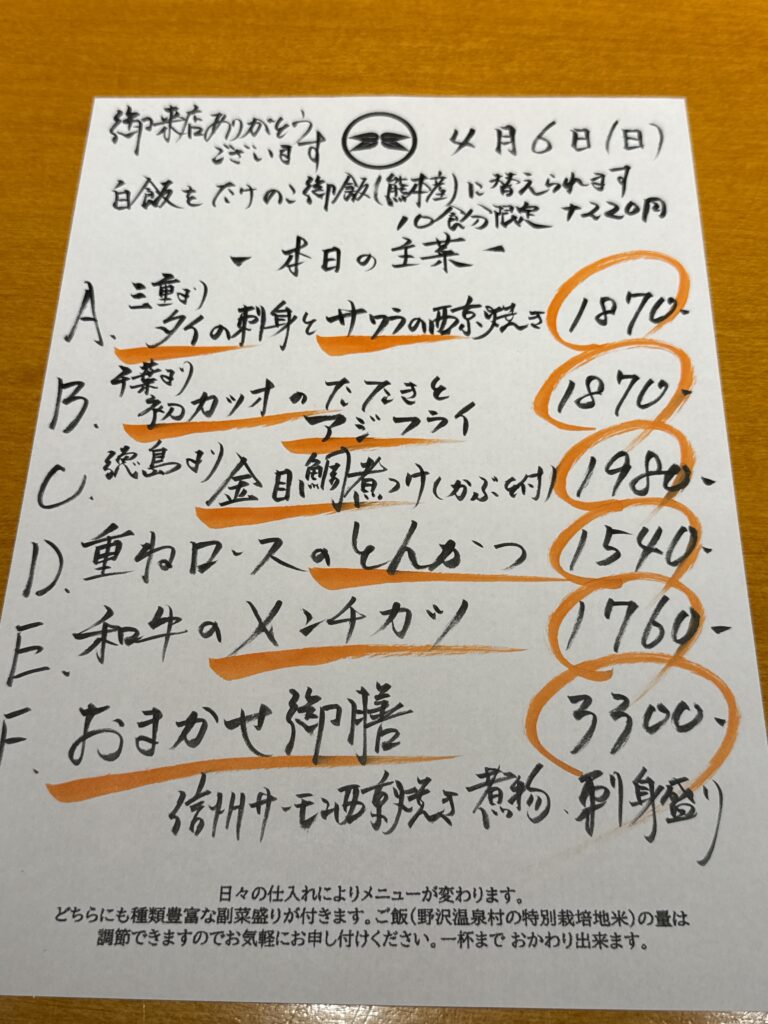 御来店ありがとう
ございます
4月6日(日)
白飯を たけのこ御飯(熊本産)に替えられます
10食分限定 +220円
- 本日の主菜 -
A. 三重より
タイの刺身とサワラの西京焼き 1870-
B. 千葉より
初カツオのたたきと
アジフライ 1870-
C. 徳島より 金目鯛煮つけ(かぶと付) 1980-
D. 重ねロースのとんかつ 1540-
E. 和牛のメンチカツ 1760-
F. おまかせ御膳 3300-
信州サーモン西京焼き 煮物、刺身盛り
日々の仕入れによりメニューが変わります。
どちらにも種類豊富な副菜盛りが付きます。ご飯(野沢温泉村の特別栽培地米)の量は
調節できますのでお気軽にお申し付けください。一杯まで おかわり出来ます。